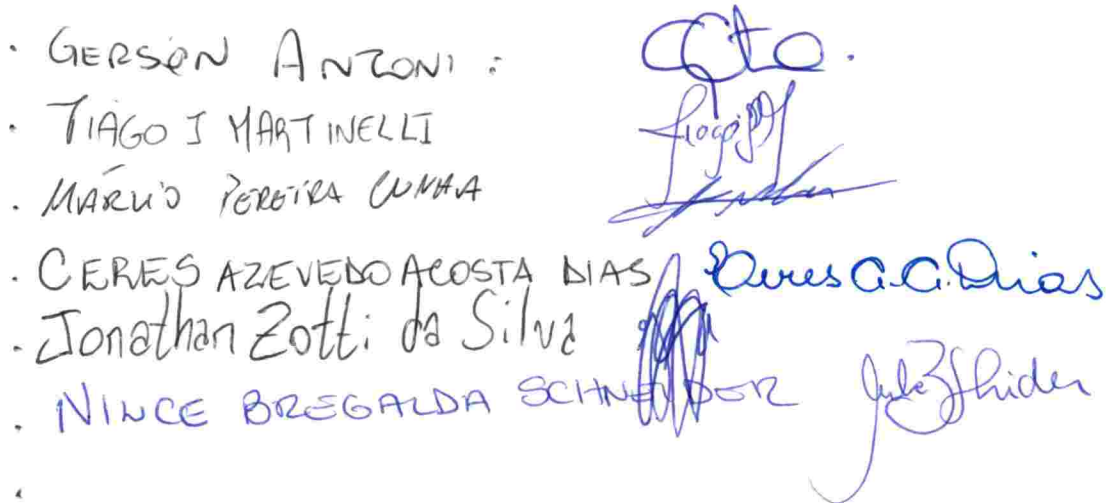 · GERSON ANZONI :
· TIAGO J MARTINELLI
· MÁRCIO PEREIRA CUNHA
· CERES AZEVEDO ACOSTA DIAS Ceres A.A. Dias
· Jonathan Zotti da Silva
· NINCE BREGALDA SCHNEIDER
·